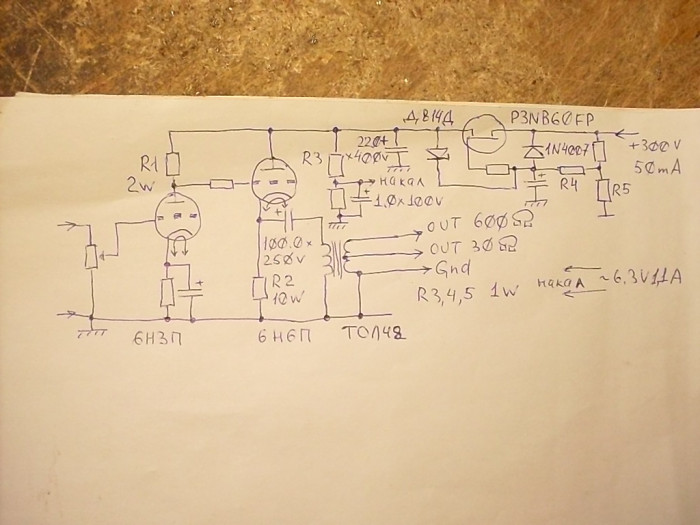 Д814Д
P3NB60FP
R1
2w
R3
220+
×400v
1N4007
+300V
50mA
накал
1,0×100V
R4
R5
100.0×
250V
OUT 600Ω
OUT 30Ω
Gnd
R2
10w
R3,4,5 1w
накал ~6,3V1,1A
6Н3П
6Н6П
ТОЛ48